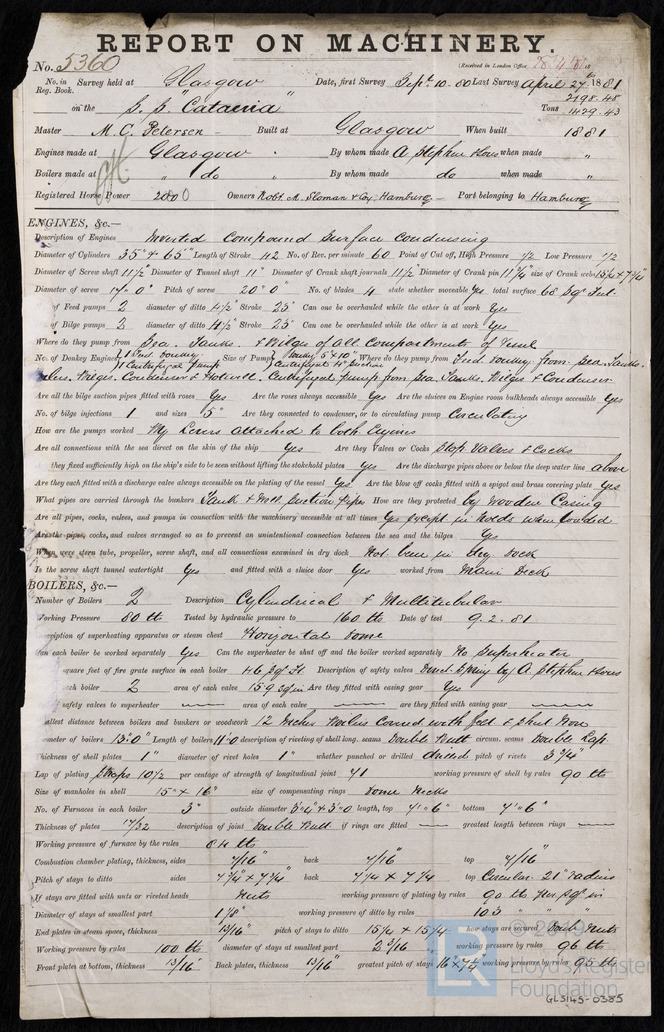 REPORT ON MACHINERY.
No. 5360 (Received in London Office
No. in Survey held at Glasgow Date, first Survey Sept. 10. 80 Last Survey April 27th 1881
Reg. Book. 2198.48
on the S. S. "Catania" Tons 1429.43
Master M. C. Petersen Built at Glasgow When built 1881
Engines made at Glasgow By whom made A Stephen & Sons when made "
Boilers made at " do By whom made do when made "
Registered Horse Power 200 Owners Robt. M. Sloman & Co., Hamburg Port belonging to Hamburg
ENGINES, &c.—
Description of Engines Inverted Compound Surface Condensing
Diameter of Cylinders 35" & 65" Length of Stroke 42 No. of Rev. per minute 60 Point of Cut off, High Pressure 1/2 Low Pressure 1/2
Diameter of Screw shaft 11 1/2 Diameter of Tunnel shaft 11" Diameter of Crank shaft journals 11 1/2 Diameter of Crank pin 11 3/4 size of Crank webs
Diameter of screw 17' 0" Pitch of screw 20' 0" No. of blades 4 state whether moveable Yes total surface 68 Sqr Feet
of Feed pumps 2 diameter of ditto 4 1/2 Stroke 25" Can one be overhauled while the other is at work Yes
of Bilge pumps 2 diameter of ditto 4 1/2 Stroke 25" Can one be overhauled while the other is at work Yes
Where do they pump from Sea. Tanks. & Bilges of all Compartments of Vessel
No. of Donkey Engines 1 Feed Donkey 1 Centrifugal Pump Size of Pumps Donkey 5 & 10" Centrifugal Suction Where do they pump from Feed Donkey from Sea. Tanks.
Bilges. Condenser & Hotwell. Centrifugal Pump from Sea, Tanks, Bilges & Condenser
Are all the bilge suction pipes fitted with roses Yes Are the roses always accessible Yes Are the sluices on Engine room bulkheads always accessible Yes
No. of bilge injections 1 and sizes 5" Are they connected to condenser, or to circulating pump Circulating
How are the pumps worked By Levers attached to both Engines
Are all connections with the sea direct on the skin of the ship Yes Are they Valves or Cocks Stop Valves & Cocks
they fixed sufficiently high on the ship's side to be seen without lifting the stokehold plates Yes Are the discharge pipes above or below the deep water line above
Are they each fitted with a discharge valve always accessible on the plating of the vessel Yes Are the blow off cocks fitted with a spigot and brass covering plate Yes
What pipes are carried through the bunkers Tank & Suction Pipes How are they protected by Wooden Casing
Are all pipes, cocks, valves, and pumps in connection with the machinery accessible at all times Yes except in Holds when loaded
Are the pipes, cocks, and valves arranged so as to prevent an unintentional connection between the sea and the bilges Yes
When were stern tube, propeller, screw shaft, and all connections examined in dry dock Not been in dry Dock
Is the screw shaft tunnel watertight Yes and fitted with a sluice door Yes worked from Main Deck
BOILERS, &c.—
Number of Boilers 2 Description Cylindrical & Multitubular
Working Pressure 80 lb Tested by hydraulic pressure to 160 lb Date of test 9. 2. 81
cription of superheating apparatus or steam chest Horizontal Dome
an each boiler be worked separately Yes Can the superheater be shut off and the boiler worked separately No Superheater
square feet of fire grate surface in each boiler 46 Sqr Ft Description of safety valves Direct Spring by A Stephen & Sons
ach boiler 2 area of each valve 15.9 sq in Are they fitted with easing gear Yes
safety valves to superheater — area of each valve — are they fitted with easing gear —
allest distance between boilers and bunkers or woodwork 12 Inches Boilers Covered with felt & Sheet Iron
meter of boilers 13' 0" Length of boilers 11' 0 description of riveting of shell long. seams Double Butt circum. seams Double Lap
Thickness of shell plates 1" diameter of rivet holes 1" whether punched or drilled drilled pitch of rivets 3 3/4"
Lap of plating Straps 10 1/2 per centage of strength of longitudinal joint 71 working pressure of shell by rules 90 lb
Size of manholes in shell 15" × 16" size of compensating rings Dome Necks
No. of Furnaces in each boiler 3 outside diameter length, top 7' 6" bottom 7' 6"
Thickness of plates 17/32 description of joint Double Butt if rings are fitted — greatest length between rings —
Working pressure of furnace by the rules 84 lb
Combustion chamber plating, thickness, sides 7/16" back 7/16" top 7/16"
Pitch of stays to ditto sides 7 3/4 × 7 3/4 back 7 1/4 × 7 1/4 top Circular. 21" radius
If stays are fitted with nuts or riveted heads Nuts working pressure of plating by rules 90 lb per sqr in
Diameter of stays at smallest part 1 1/8" working pressure of ditto by rules 103 " "
End plates in steam space, thickness 13/16" pitch of stays to ditto 15 1/4 × 15 1/4 how stays are secured Doub. Nuts
Working pressure by rules 100 lb diameter of stays at smallest part 2 3/16" working pressure by rules 96 lb
Front plates at bottom, thickness 13/16" Back plates, thickness 13/16" greatest pitch of stays working pressure by rules 95 lb
© 2019
Lloyd's Register
Foundation
GLS145-0385